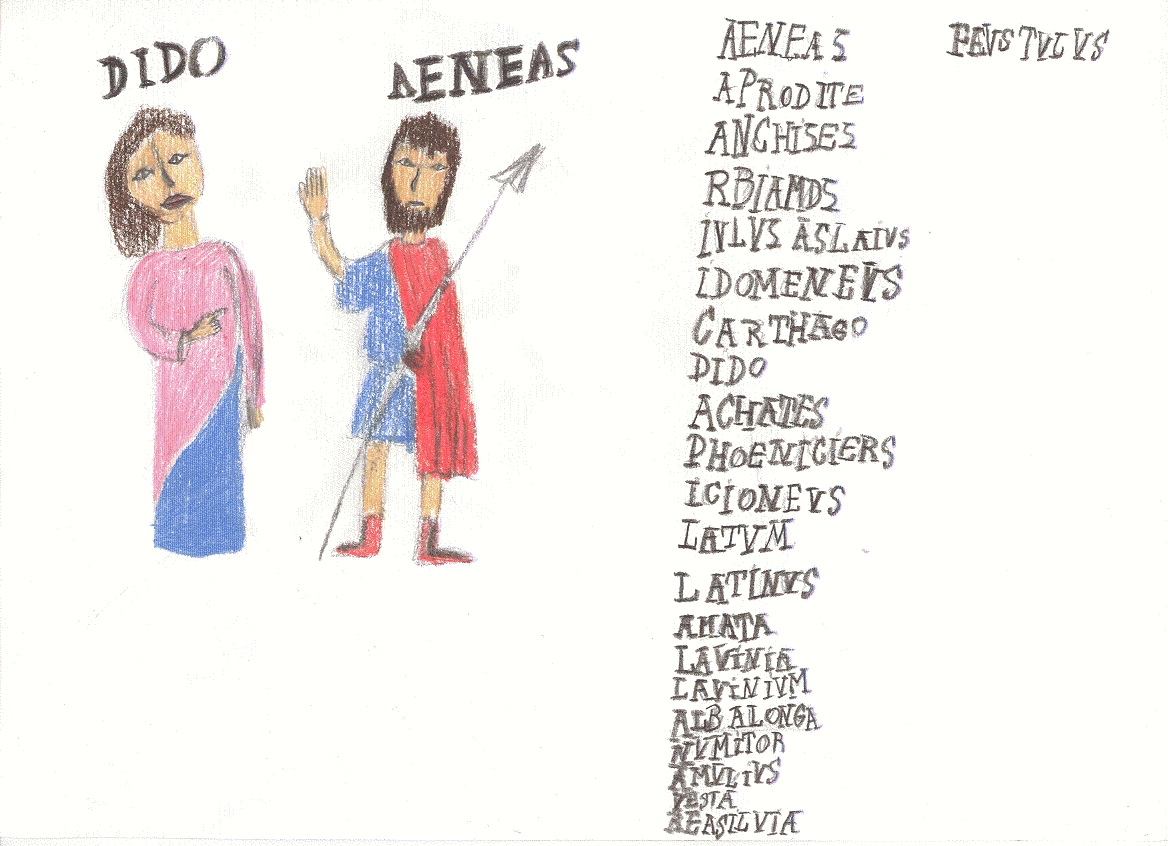 DIDO
AENEAS
AENEAS
APRODITE
ANCHISES
RBIAMDS
IVLVS ASLAIVS
IDOMENEVS
CARTHAGO
DIDO
ACHATES
PHOENICIERS
ICIONEVS
LATVM
LATINVS
AMATA
LAVINIA
LAVINIVM
ALBALONGA
NVMITOR
AMVLIVS
VESTA
REASILVIA